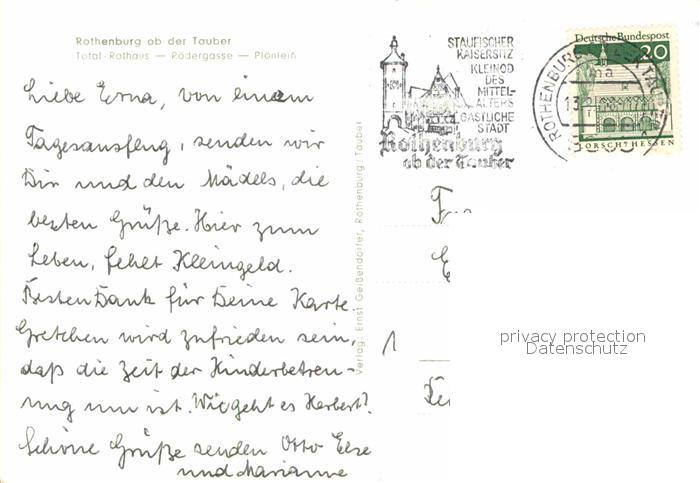 Rothenburg ob der Tauber
Total-Rathaus — Rödergasse — Plönlein
Liebe Erna, von einem
Tagesausfeug, senden wir
Dir und den Mädels, die
besten Grüße. Hier zum
Leben, fehlt Kleingeld.
Besten Dank für Deine Karte.
Gretchen wird zufrieden sein,
daß die Zeit der Kinderbetreu-
ung um ist. Wie geht es Herbert?
Schöne Grüße senden Otto Else
und Marianne
Verlag: Ernst Geißendörfer, Rothenburg/Tauber
STAUFISCHER
KAISERSITZ
KLEINOD
DES
MITTEL-
ALTERS
GASTLICHE
STADT
Rothenburg
ob der Tauber
Deutsche Bundespost
20
LORSCH/HESSEN
privacy protection
Datenschutz